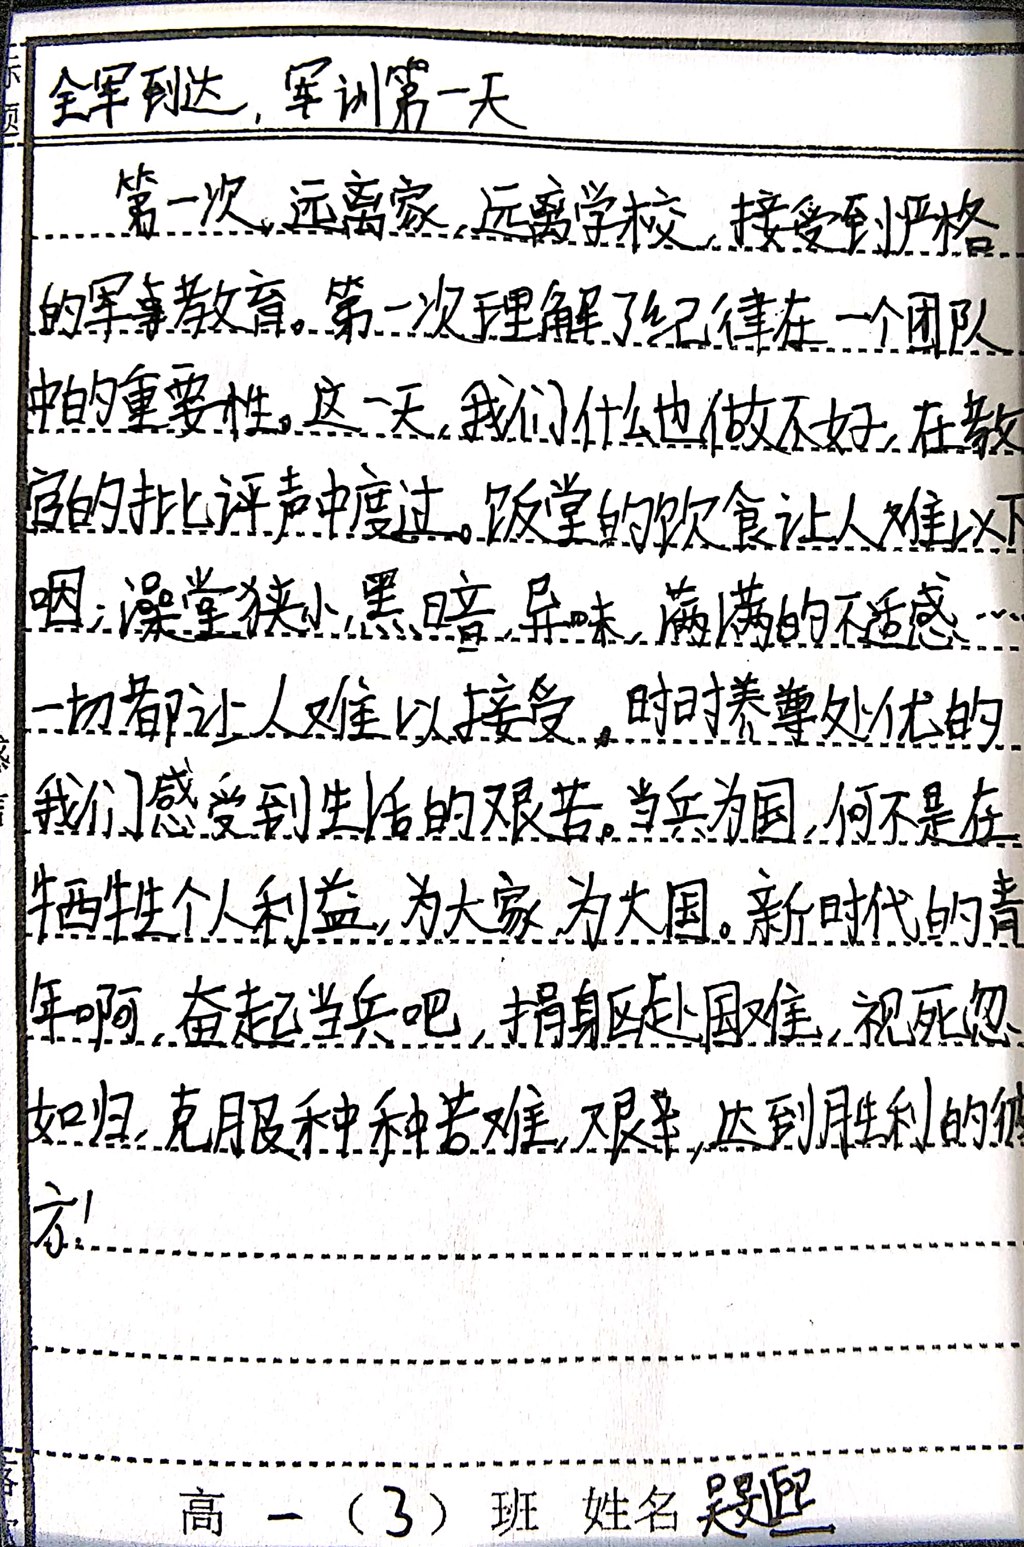 标题
全军到达，军训第一天
第一次，远离家，远离学校，接受到严格
的军事教育。第一次理解了纪律在一个团队
中的重要性。这一天，我们什么也做不好，在教
官的批评声中度过。饭堂的饮食让人难以下
咽；澡堂狭小，黑暗，异味，满满的不适感……
一切都让人难以接受。时时养尊处优的
我们感受到生活的艰苦。当兵为国，何不是在
牺牲个人利益，为大家，为大国。新时代的青
年啊，奋起当兵吧，捐身区赴国难，视死忽
如归，克服种种苦难，艰辛，达到胜利的彼
方！
高一（3）班 姓名